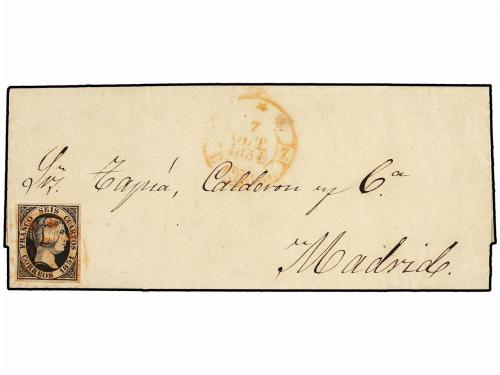 7
OCT
1851
Sres. Tapiá, Calderon y Cª
FRANCO SEIS CUARTOS
CORREOS 1851
Madrid.